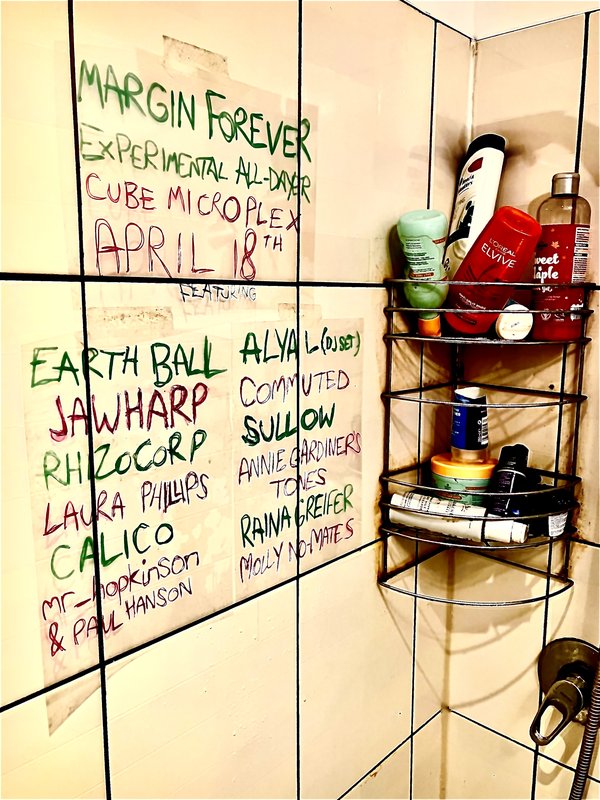 MARGIN FOREVER
EXPERIMENTAL ALL-DAYER
CUBE MICROPLEX
APRIL 18TH
FEATURING
EARTH BALL
JAWHARP
RHIZOCORP
LAURA PHILLIPS
CALICO
mr_hopkinson
& PAUL HANSON
ALYA L (DJ SET)
COMMUTED
SULLOW
ANNIE GARDINER'S
TONES
RAINA GREIFER
MOLLY NO-MATES
L'ORÉAL
ELVIVE